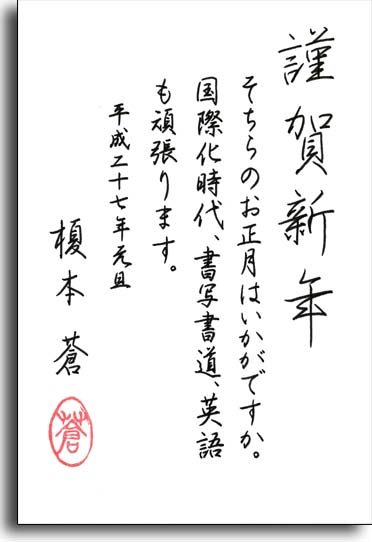 謹賀新年
そちらのお正月はいかがですか。
国際化時代、書写書道、英語
も頑張ります。
平成二十七年元旦
榎本 蒼
蒼